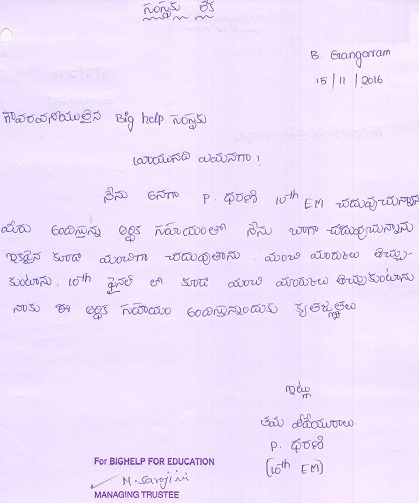 సంస్థకు లేఖ
B. Gangaram
15/11/2016
గౌరవనీయులైన Big help సంస్థకు
వ్రాయునది ఏమనగా!
నేను అనగా P. ధరణి 10th EM చదువుచున్నాను
మీరు అందిస్తున్న ఆర్థిక సహాయంతో నేను బాగా చదువుచున్నాను
ఇకపైన కూడా మంచిగా చదువుతాను. మంచి మార్కులు తెచ్చు-
కుంటాను. 10th ఫైనల్ లో కూడ మంచి మార్కులు తెచ్చుకుంటాను
నాకు ఈ ఆర్థిక సహాయం అందిస్తున్నందుకు కృతజ్ఞతలు
ఇట్లు
తమ విధేయురాలు
P. ధరణి
(10th EM)
For BIGHELP FOR EDUCATION
M. Sarojini
MANAGING TRUSTEE